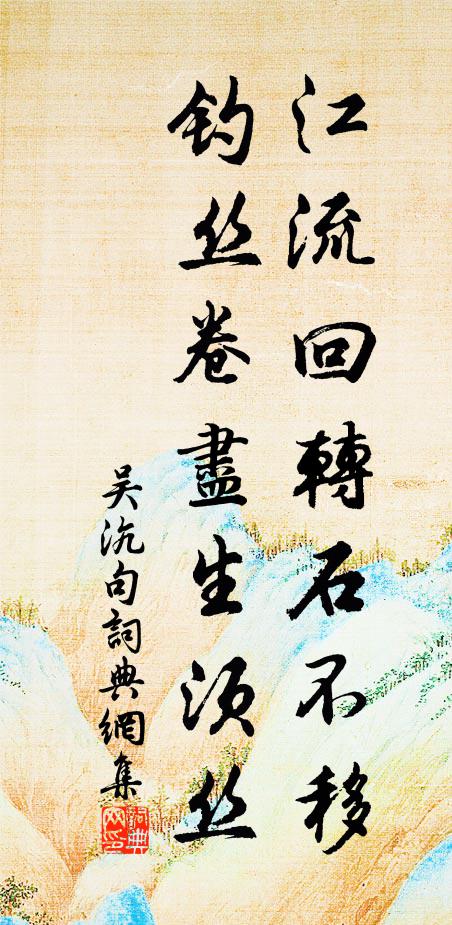 江流回轉石不移
钓丝卷盡生须丝
吴沆句詞典網集
詞典
网印